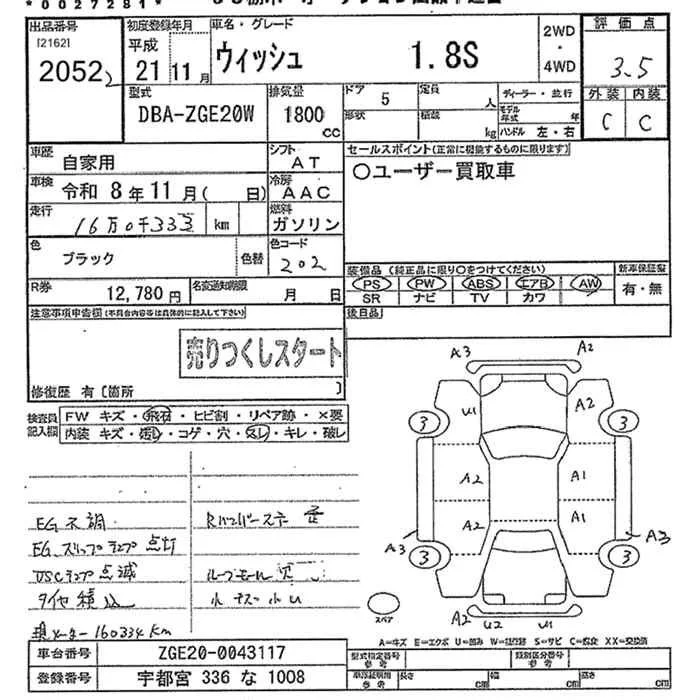 *0027281*
出品番号 [2162] 2052
初度登録年月 平成 21年 11月
車名・グレード ウィッシュ 1.8S
2WD・4WD
評価点 3.5
外装 C 内装 C
型式 DBA-ZGE20W
排気量 1800 cc
ドア 5 形状
定員 人 積載 kg
ディーラー・並行
モデル年式 年
ハンドル 左・右
車歴 自家用
シフト AT
セールスポイント(正常に機能するものに限ります)
○ユーザー買取車
車検 令和 8年 11月( 日)
冷房 AAC
走行 16万0千333 km
燃料 ガソリン
色 ブラック 色替
色コード 202
装備品(純正品に限り○をつけてください)
新車保証書 有・無
PS PW ABS エアB AW
SR ナビ TV カワ
R券 12,780円
名変通知期限 月 日
後日品
注意事項申告欄(不具合内容等は具体的に記入して下さい)
売りつくしスタート
修復歴 有〔箇所 〕
検査員記入欄
FW キズ・飛石・ヒビ割・リペア跡・×要
内装 キズ・汚レ・コゲ・穴・スレ・キレ・破レ
EG 不調
EG スリップランプ 点灯
VSCランプ 点滅
タイヤ 積込
現メーター 160334Km
小キズ 小U
A3 A2
U1 A2
3 3
A2 A1
A2 A1
A3 A3
3 3
A2 U2 U1
スペア
A=キズ E=エクボ U=凹み W=補修跡 S=サビ C=腐食 XX=交換済
車台番号 ZGE20-0043117
登録番号 宇都宮 336 な 1008
型式指定番号 参考
類別区分番号 参考
車庫証明用 参考 長さ cm 幅 cm 高さ cm